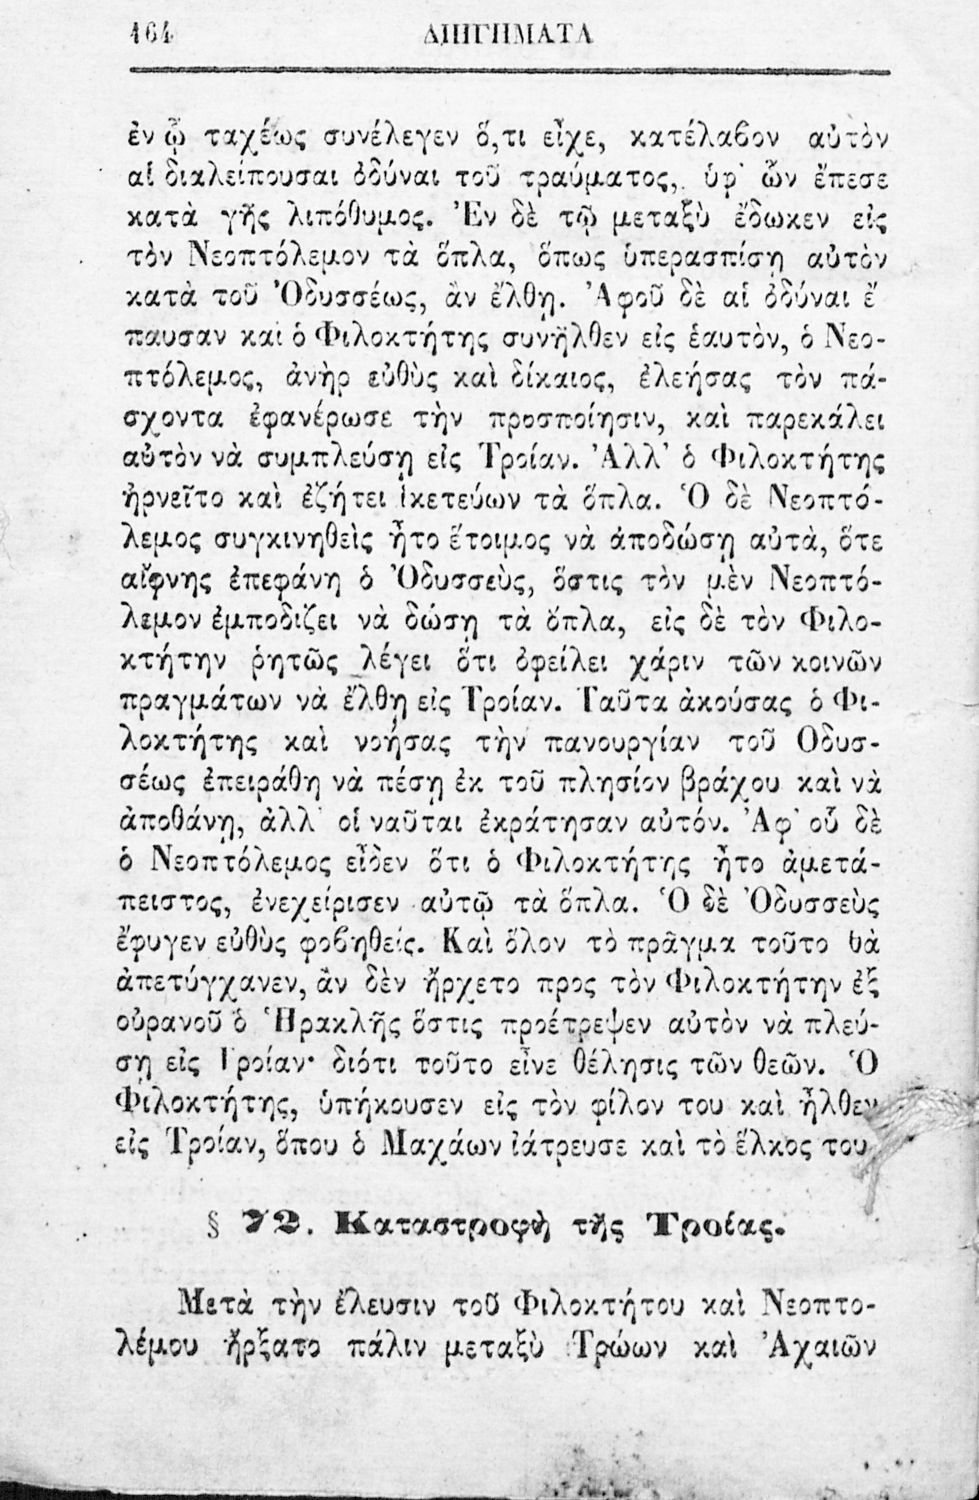 164 ΔΙΗΓΗΜΑΤΑ
ἐν ᾧ ταχέως συνέλεγεν ὅ,τι εἶχε, κατέλαβον αὐτὸν
αἱ διαλείπουσαι ὀδύναι τοῦ τραύματος, ὑφ' ὧν ἔπεσε
κατὰ γῆς λιπόθυμος. Ἐν δὲ τῷ μεταξὺ ἔδωκεν εἰς
τὸν Νεοπτόλεμον τὰ ὅπλα, ὅπως ὑπερασπίσῃ αὐτὸν
κατὰ τοῦ Ὀδυσσέως, ἂν ἔλθῃ. Ἀφοῦ δὲ αἱ ὀδύναι ἔ
παυσαν καὶ ὁ Φιλοκτήτης συνῆλθεν εἰς ἑαυτὸν, ὁ Νεο-
πτόλεμος, ἀνὴρ εὐθὺς καὶ δίκαιος, ἐλεήσας τὸν πά-
σχοντα ἐφανέρωσε τὴν προσποίησιν, καὶ παρεκάλει
αὐτὸν νὰ συμπλεύσῃ εἰς Τροίαν. Ἀλλ' ὁ Φιλοκτήτης
ἠρνεῖτο καὶ ἐζήτει ἱκετεύων τὰ ὅπλα. Ὁ δὲ Νεοπτό-
λεμος συγκινηθεὶς ἦτο ἕτοιμος νὰ ἀποδώσῃ αὐτὰ, ὅτε
αἴφνης ἐπεφάνη ὁ Ὀδυσσεὺς, ὅστις τὸν μὲν Νεοπτό-
λεμον ἐμποδίζει νὰ δώσῃ τὰ ὅπλα, εἰς δὲ τὸν Φιλο-
κτήτην ῥητῶς λέγει ὅτι ὀφείλει χάριν τῶν κοινῶν
πραγμάτων νὰ ἔλθῃ εἰς Τροίαν. Ταῦτα ἀκούσας ὁ Φι-
λοκτήτης καὶ νοήσας τὴν πανουργίαν τοῦ Οδυσ-
σέως ἐπειράθη νὰ πέσῃ ἐκ τοῦ πλησίον βράχου καὶ νὰ
ἀποθάνῃ, ἀλλ' οἱ ναῦται ἐκράτησαν αὐτόν. Ἀφ' οὗ δὲ
ὁ Νεοπτόλεμος εἶδεν ὅτι ὁ Φιλοκτήτης ἦτο ἀμετά-
πειστος, ἐνεχείρισεν αὐτῷ τὰ ὅπλα. Ὁ δὲ Ὀδυσσεὺς
ἔφυγεν εὐθὺς φοβηθείς. Καὶ ὅλον τὸ πρᾶγμα τοῦτο θὰ
ἀπετύγχανεν, ἂν δὲν ἤρχετο προς τὸν Φιλοκτήτην ἐξ
οὐρανοῦ ὁ Ἡρακλῆς ὅστις προέτρεψεν αὐτὸν νὰ πλεύ-
σῃ εἰς Τροίαν· διότι τοῦτο εἶνε θέλησις τῶν θεῶν. Ὁ
Φιλοκτήτης, ὑπήκουσεν εἰς τὸν φίλον του καὶ ἦλθεν
εἰς Τροίαν, ὅπου ὁ Μαχάων ἰάτρευσε καὶ τὸ ἕλκος του
§ 72. Καταστροφὴ τῆς Τροίας.
Μετὰ τὴν ἔλευσιν τοῦ Φιλοκτήτου καὶ Νεοπτο-
λέμου ἤρξατο πάλιν μεταξὺ Τρώων καὶ Ἀχαιῶν